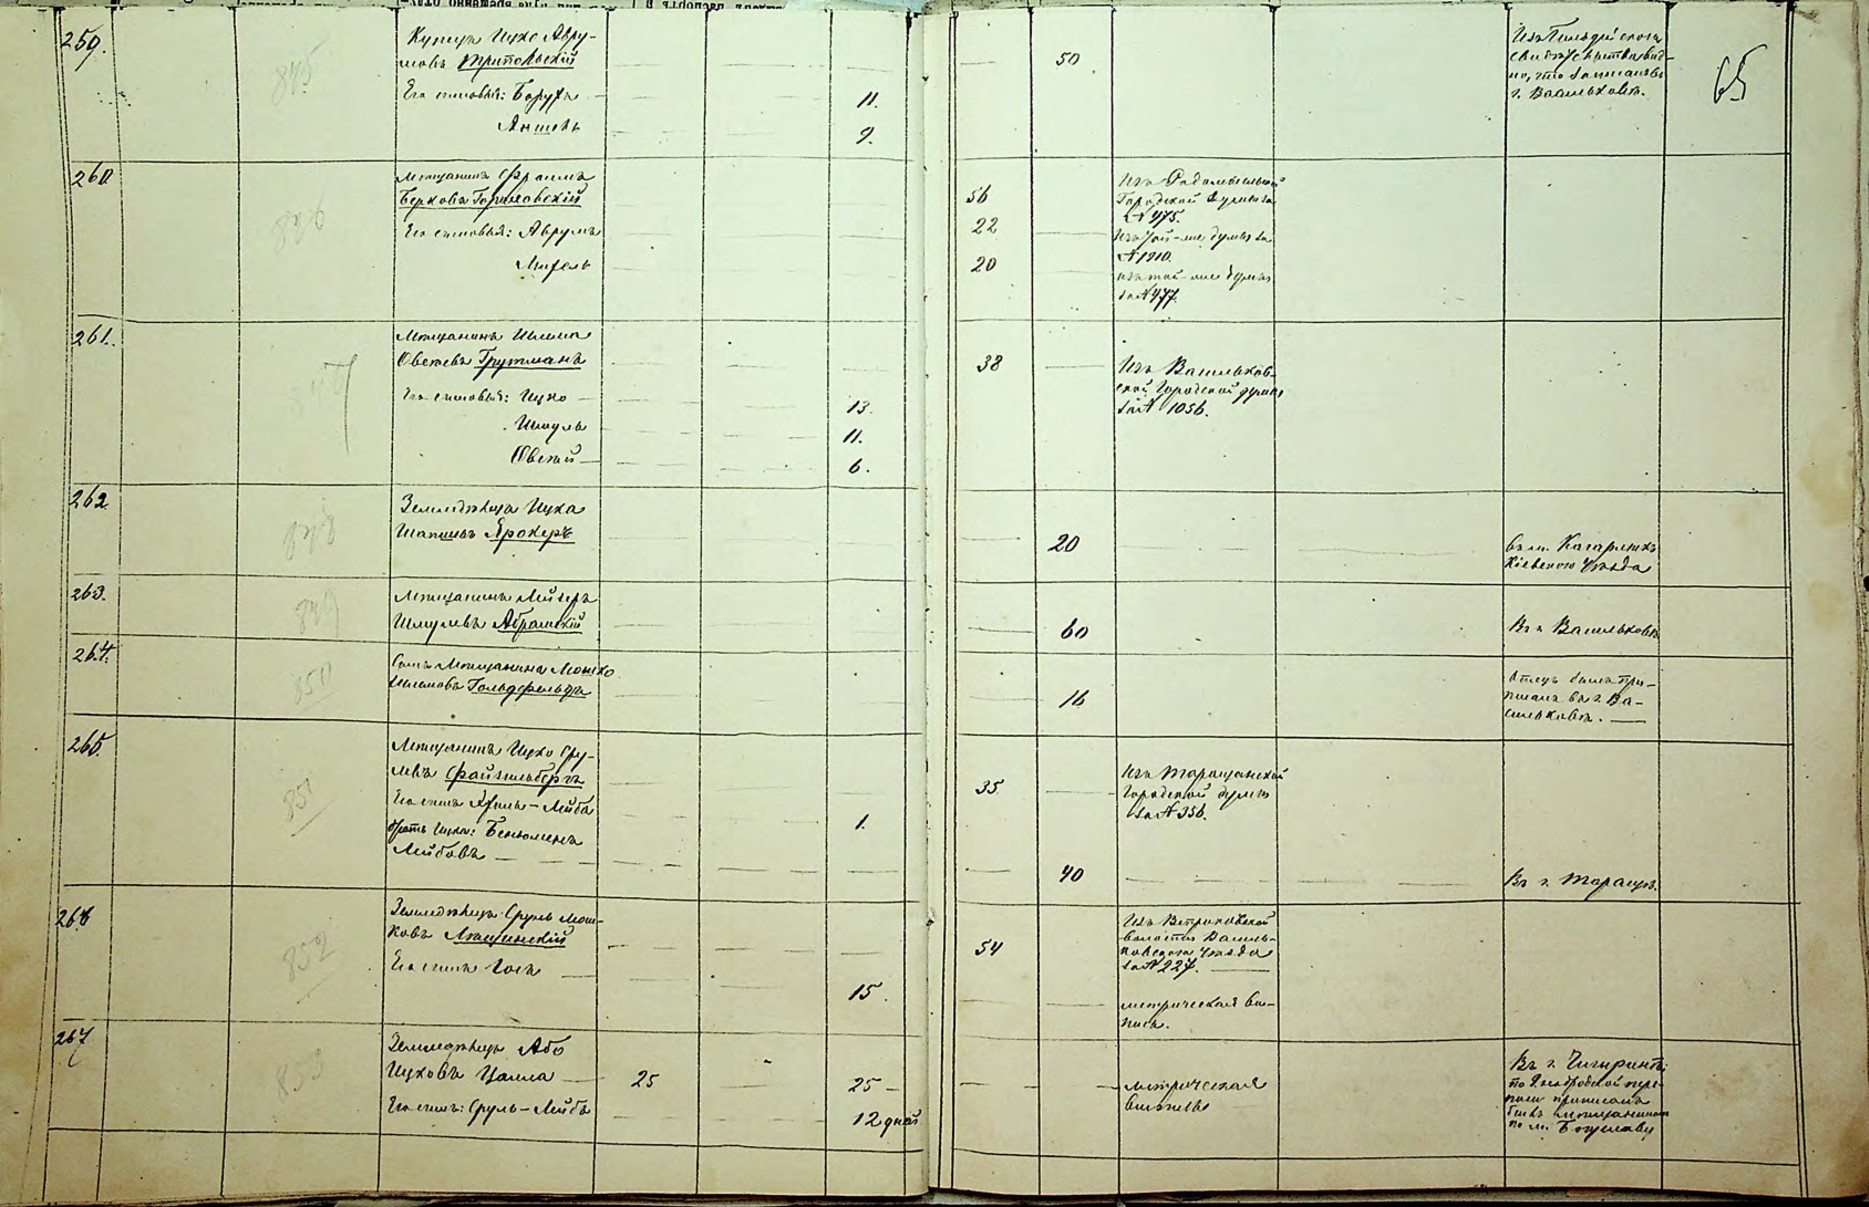 259.
845
Купецъ Ицко Авру-
мовъ Триполь­скій
50
Изъ
г. Васильковѣ.
65
Его сыновья: Борухъ
11.
Аншель
9.
260
846
Мѣщанинъ Фраимъ
Берковъ
56
Изъ Радомысльской
Городской Думы за
№ 475.
Его сыновья: Аврумъ
22
Изъ той-же думы за
№ 1910.
20
изъ той-же думы
за № 477.
261.
847
Мѣщанинъ Шлема
Овсеевъ Грутманъ
38
Изъ Васильков-
ской Городской думы
за № 1056.
Его сыновья: Ицко
13.
Шмуль
11.
Овсей
6.
262
848
Земледѣлецъ Ицка
20
въ м. Кагарлыкѣ
Кіевскаго Уѣзда
263.
849
Мѣщанинъ Лейзеръ
Шмулевъ Абрамскій
60
Въ г. Васильковѣ
264.
850
Сынъ Мѣщанина Мошко
Шлемовъ Гольдфельдъ
16
Отецъ былъ при-
писанъ въ г. Ва-
сильковѣ.
265.
851
Мѣщанинъ Ицко Сру-
левъ Файнильбергъ
35
Изъ Таращанской
Городской думы
за № 356.
Его сынъ Лейба
1.
братъ Ицка: Беньюменъ
Лейбовъ
40
Въ г. Таращѣ.
266
852
Земледѣлецъ Сруль Мош-
ковъ
54
Изъ
волости Василь-
ковскаго Уѣзда
за № 227.
Его сынъ Іосъ
15.
метрическая вы-
пись.
267
853
Земледѣлецъ Або
Ицковъ Цалла
25
25
метрическая
выпись
Въ г. Чигиринѣ
по
приписанъ
мѣщаниномъ
по м. Богуславу
Его сынъ: Сруль-Лейбъ
12 дней